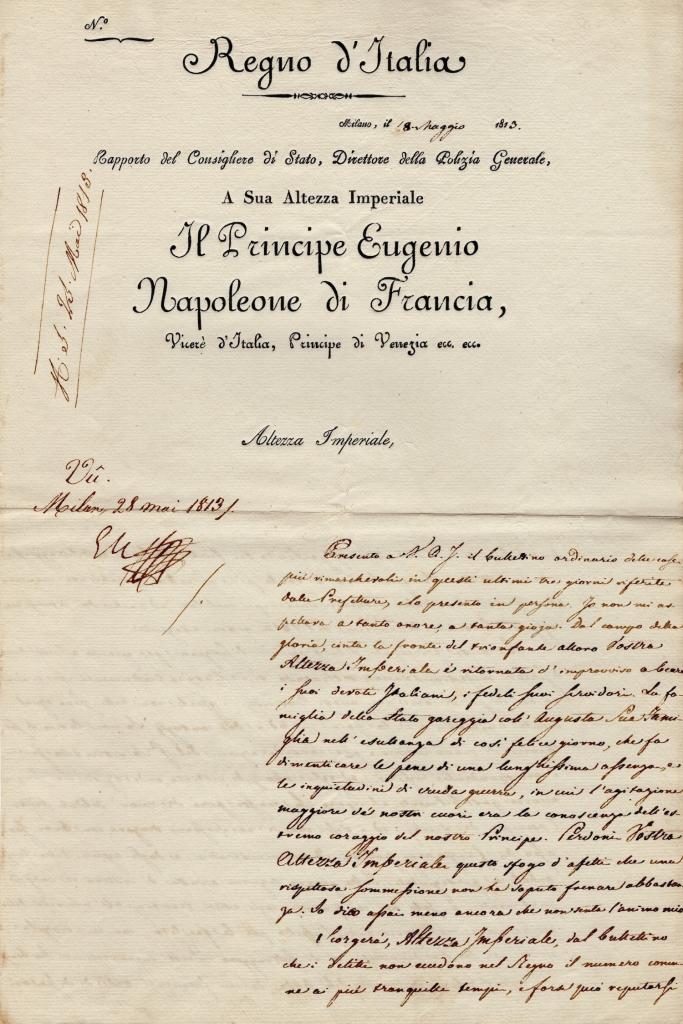 N.º
Regno d'Italia
Milano, il 18 Maggio 1813.
Rapporto del Consigliere di Stato, Direttore della Polizia Generale,
A Sua Altezza Imperiale
Il Principe Eugenio
Napoleone di Francia,
Vicerè d'Italia, Principe di Venezia ecc. ecc.
Mai 1813.
Altezza Imperiale,
Vû.
Milan, 28 mai 1813
Presento a V. A. I. il bullettino ordinario delle cose
più rimarchevoli in questi ultimi tre giorni riferite
dalle Prefetture, e lo presento in persona. Io non mi as-
pettava a tanto onore, a tanta gioja. Dal campo della
gloria, cinta la fronte del trionfante alloro Vostra
Altezza Imperiale è ritornata d'improvviso a beare
i suoi devoti Italiani, i fedeli suoi servidori. La fa-
miglia dello Stato gareggia coll'Augusta Sua Fami-
glia nell'esultanza di così felice giorno, che fa
dimenticare le pene di una lunghissima assenza, e
le inquietudini di cruda guerra, in cui l'agitazione
maggiore de' nostri cuori era la conoscenza dell'es-
tremo coraggio del nostro Principe. Perdoni Vostra
Altezza Imperiale questo sfogo d'affetti che una
rispettosa sommessione non ha saputo frenare abbastan-
za. Io dico assai meno ancora che non senta l'animo mio
Scorgerà, Altezza Imperiale, dal bullettino
che i delitti non eccedono nel Regno il numero comu-
ne ai più tranquilli tempi, e forse può reputarsi